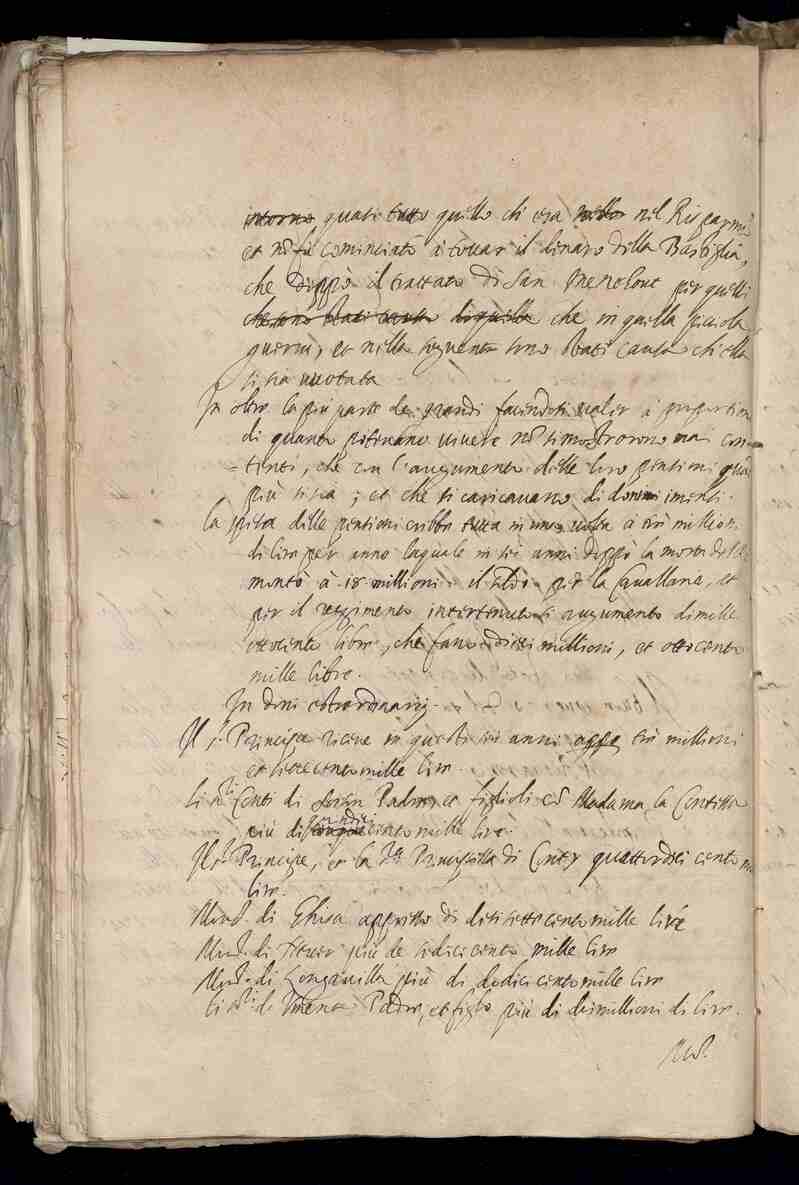 intorno quasi tutto quello che era nello nel Rispargnio
et nō fu cominciato à toccar il denaro della Bastiglia,
che doppò il trattato di San Menehout per quelli
che sono stati causa di quella che in quella picciola
guerra, et nella seguente sono stati causa ch'ella
si sia vuotata
In oltre la più parte dei grandi facendosi valer à proportion
di quanto potevano vivere nō si mostrorono mai con-
=tenti, che con l'augumento delle loro pentioni
più ; et che si caricavano di donni
La spesa delle pentioni crebbe tutta in una volta à trè millioni
di lire per anno laquale in sei anni doppò la morte del
montò à 18 millioni il soldo per la Cavallaria, et
per il reggimento intertenuto augumento di mille
ottocento libre, che fano dieci millioni, et ottocento
mille libre.
In doni estraordinarij.
Il s.r Principe riceve in questi sei anni trè millioni
et sette cento mille lire.
Li s.ri Conti di Padre, et figlioli et Madama la Contessa
più di cinque cento mille lire.
Il s.r Principe, et la Principessa di Conty quattordeci cento
lire.
Mons.r di Ghisa appresso di dicisette cento mille lire
Mons.r di più de sedici cento mille lire
Mons.r di Longavilla più di dodici cento mille lire
Li s.ri di Padre, et figlio più di doi millioni di lire.
Mons.r